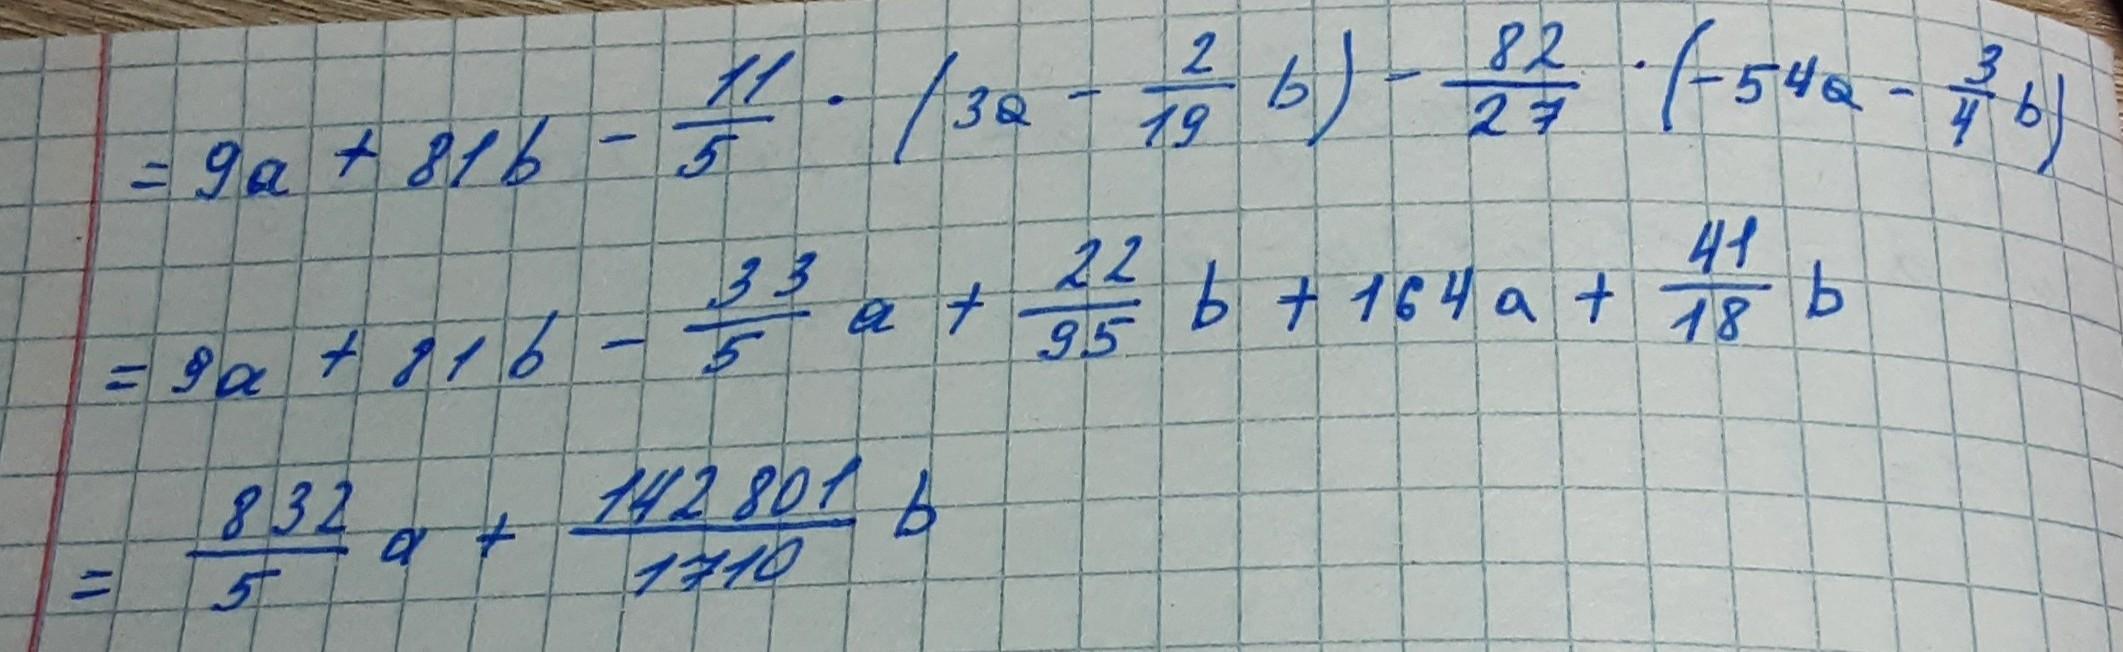 = 9a + 81b - 11/5 · (3a - 2/19 b) - 82/27 · (-54a - 3/4 b)
= 9a + 81b - 33/5 a + 22/95 b + 164a + 41/18 b
= 832/5 a + 142 801/1710 b